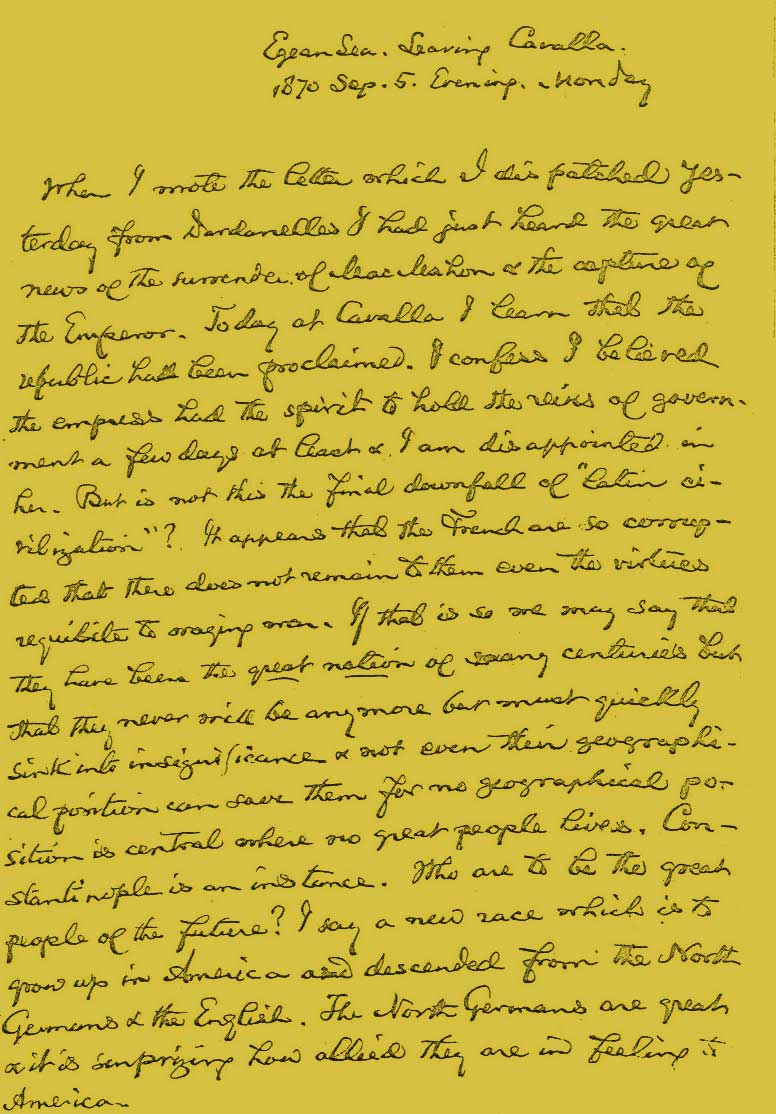 Egean Sea. Leaving Cavalla.
1870 Sep. 5. Evening. Monday
When I wrote the letter which I dispatched yes-
terday from Dardanelles I had just heard the great
news of the surrender of MacMahon & the capture of
the Emperor. Today at Cavalla I learn that the
republic has been proclaimed. I confess I believed
the empress had the spirit to hold the reins of govern-
ment a few days at least & I am disappointed in
her. But is not this the final downfall of "Latin ci-
vilization"? It appears that the French are so corrup-
ted that there does not remain to them even the virtues
requisite to waging war. If that is so we may say that
they have been the great nation of many centuries but
that they never will be any more but must quickly
sink into insignificance & not even their geographi-
cal position can save them for no geographical po-
sition is central where no great people lives. Con-
stantinople is an instance. Who are to be the great
people of the future? I say a new race which is to
grow up in America and descended from the North
Germans & the English. The North Germans are great
& it is surprizing how allied they are in feeling to
America.